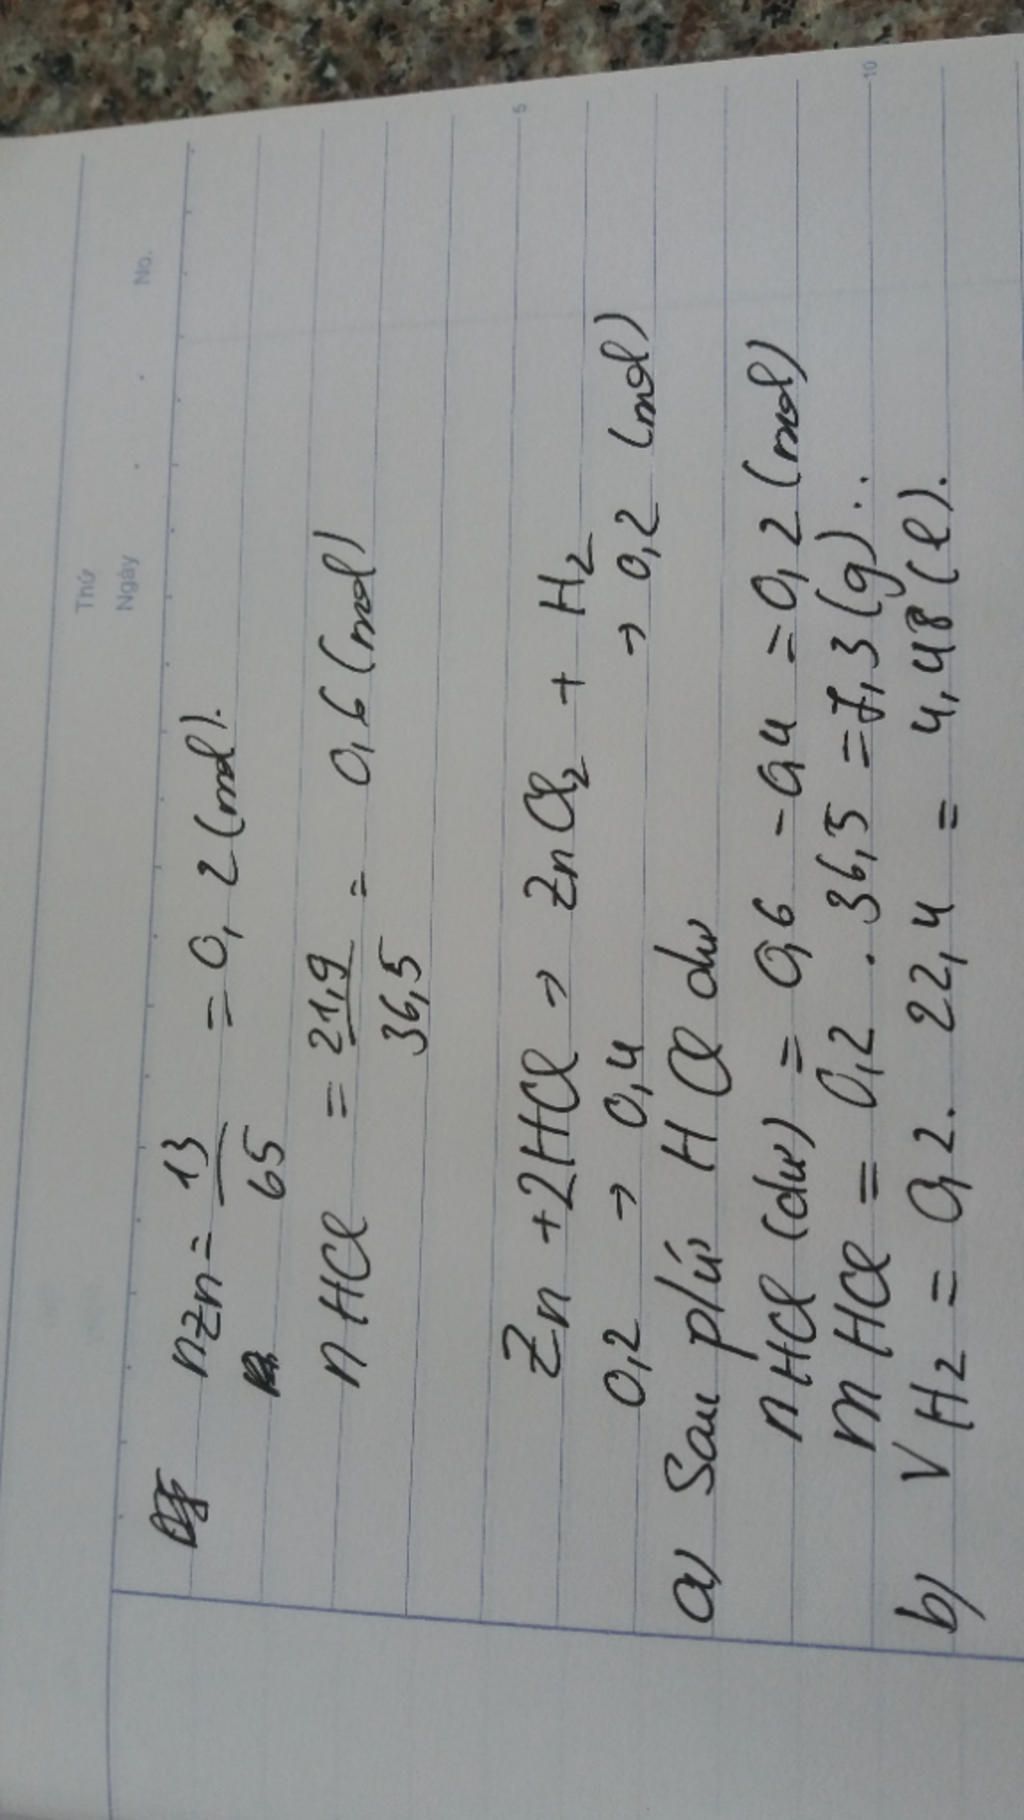 Thứ
Ngày . . No.
nZn = 13/65 = 0,2 (mol).
nHCl = 21,9/36,5 = 0,6 (mol)
5
Zn + 2HCl → ZnCl2 + H2
0,2 → 0,4 → 0,2 (mol)
a) Sau p/ứ HCl dư
nHCl (dư) = 0,6 - 0,4 = 0,2 (mol)
10
mHCl = 0,2 . 36,5 = 7,3 (g)..
b) VH2 = 0,2. 22,4 = 4,48 (l).